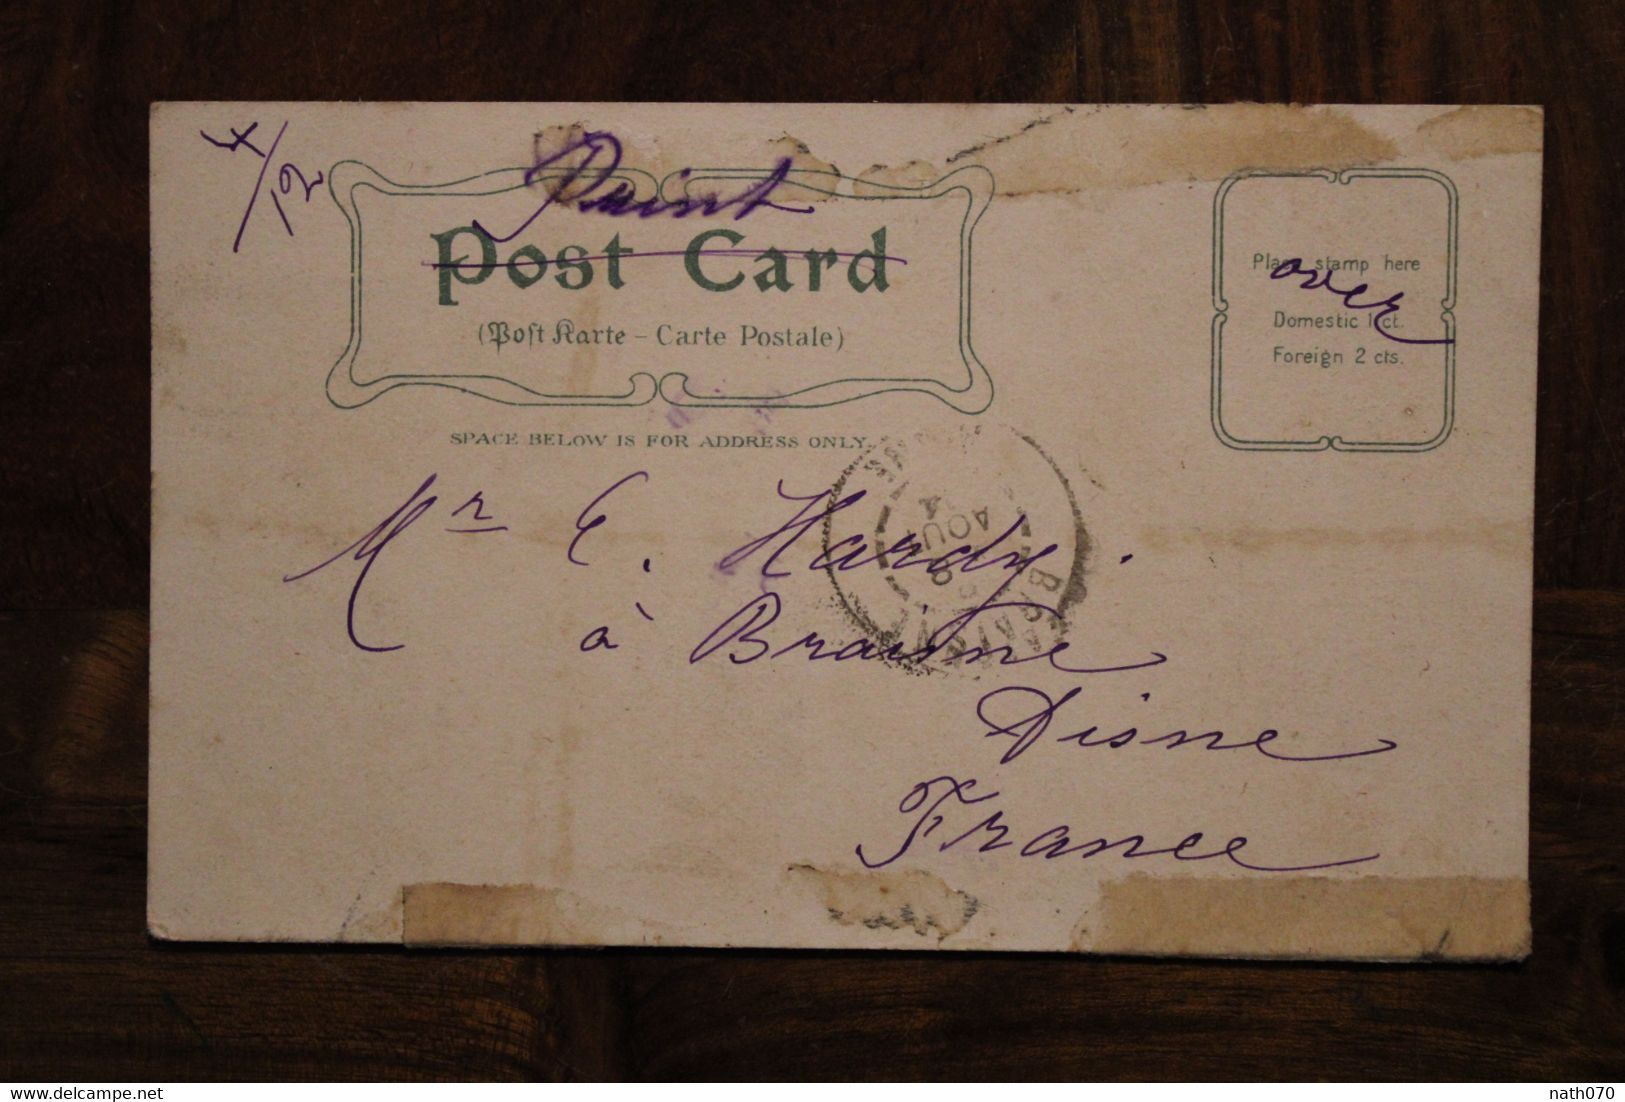 4/12
Print
Post Card
(Post Karte - Carte Postale)
Place stamp here
over
Domestic 1 ct.
Foreign 2 cts.
SPACE BELOW IS FOR ADDRESS ONLY.
Mr E. Hardy.
à Braisne
Aisne
France
BRAISNE
AOUT
nath070